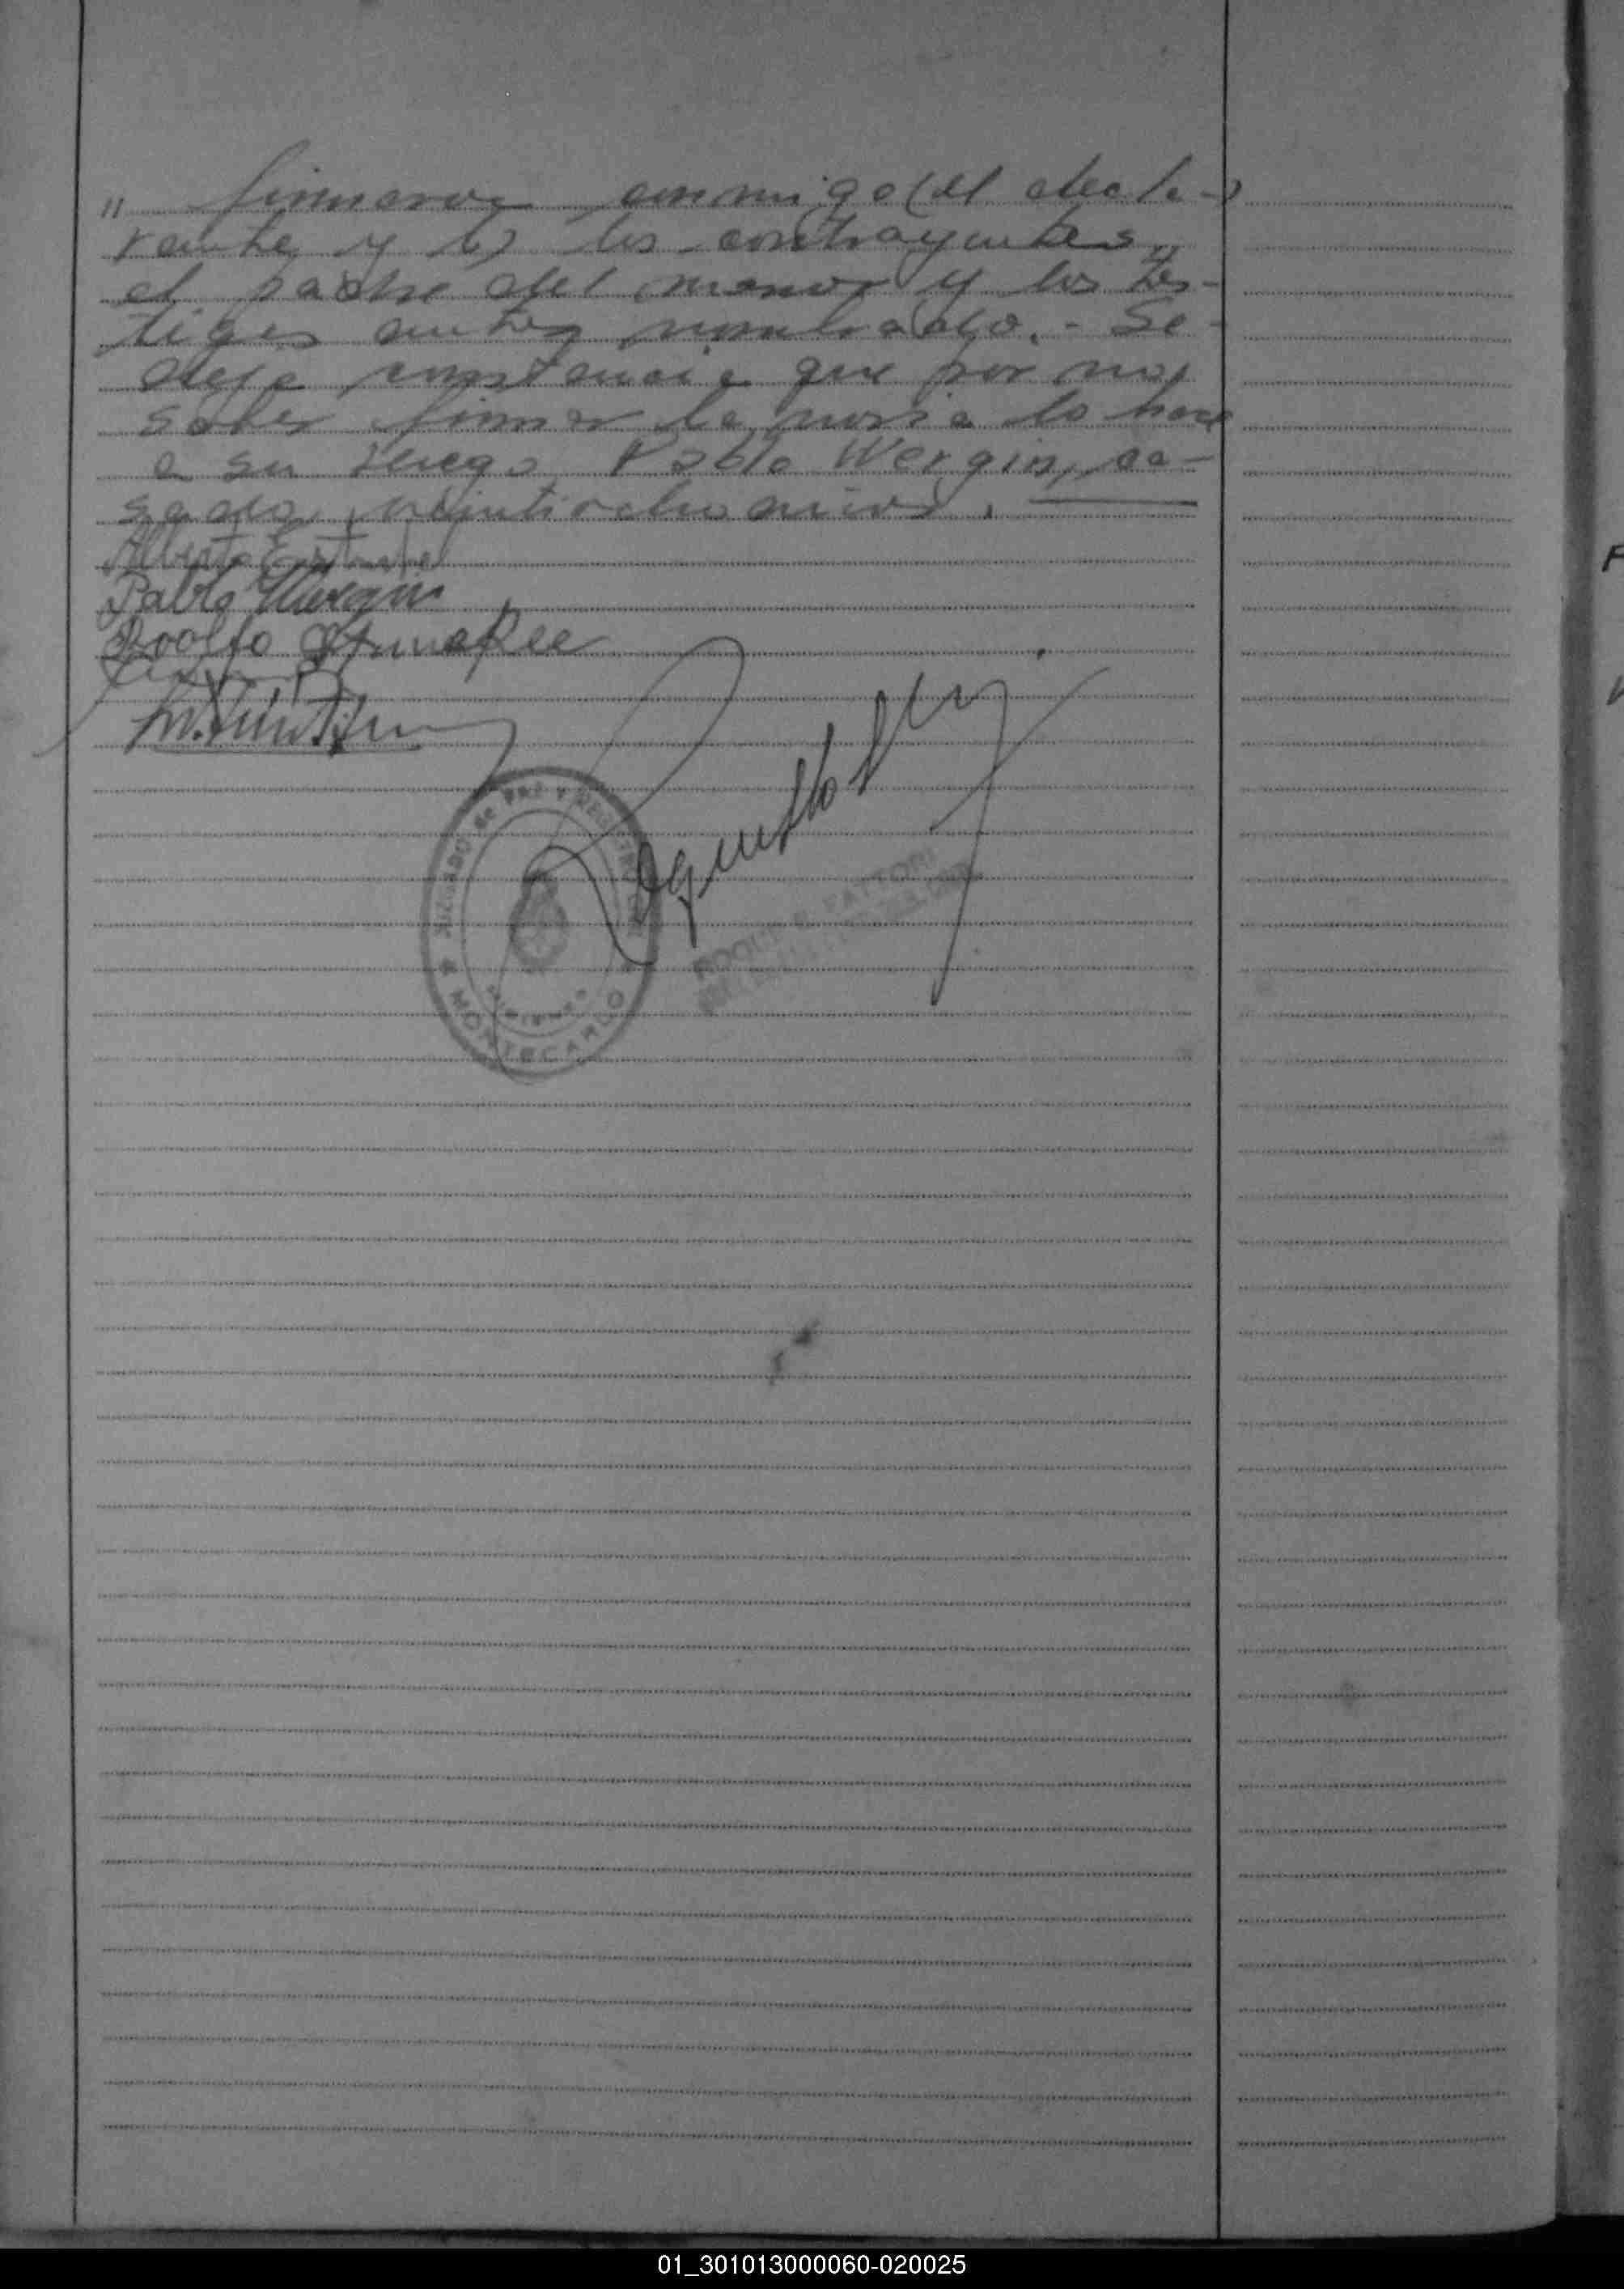 " firmaron conmigo (el decla-
rante y) los contrayentes,
el padre del menor y los tes-
tigos antes nombrado. - Se
deja constancia que por no
saber firmar la novia lo hace
a su ruego Pablo Wergin, ca-
sado, veintiocho años.
Alberto
Pablo Wergin
Rodolfo
JUZGADO de PAZ Y REGISTRO
MISIONES
★ MONTECARLO ★
ROQUE FATTORI
01_301013000060-020025